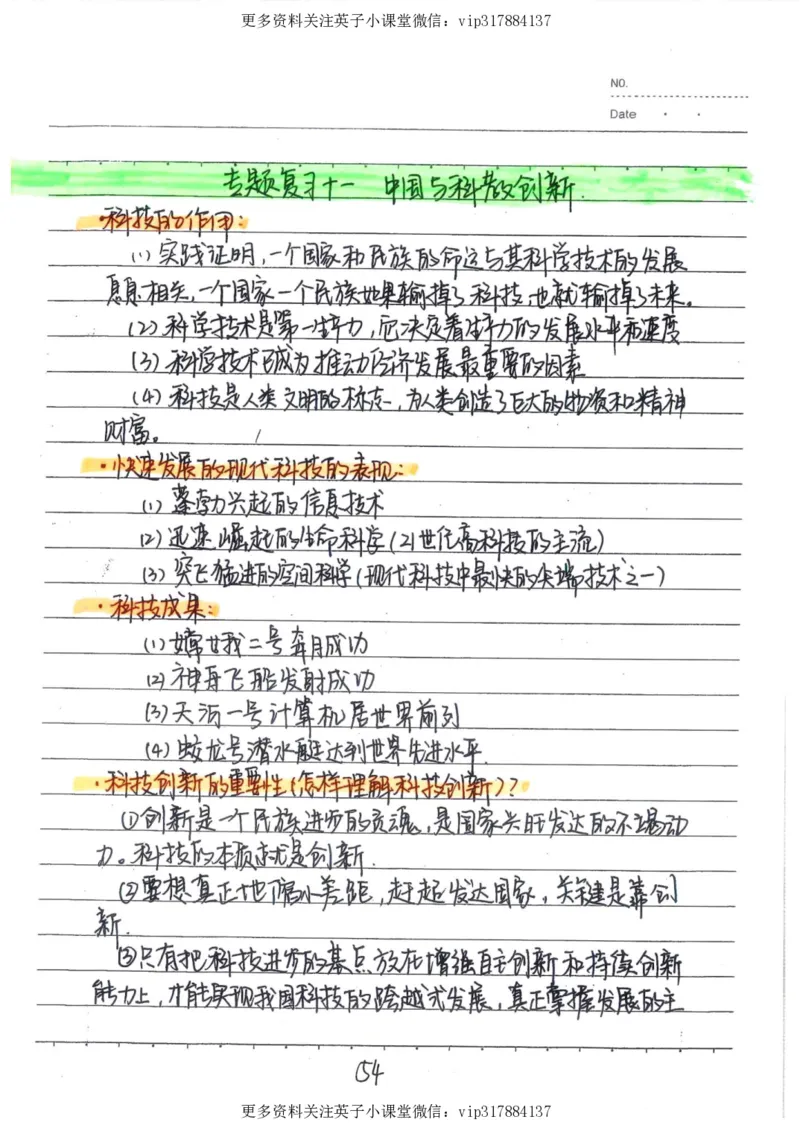 更多资料关注英子小课堂微信：vip317884137
NO.
Date
专题复习十一 中国与科教创新.
·科技的作用:
(1)实践证明,一个国家和民族的命运与其科学技术的发展
息息相关,一个国家一个民族如果输掉了科技,也就输掉了未来。
(2)科学技术是第一生产力,它决定着生产力的发展水平和速度
(3)科学技术已成为推动经济发展最重要的因素
(4)科技是人类文明的标志,为人类创造了巨大的物质和精神
财富。
·快速发展的现代科技的表现:
(1)蓬勃兴起的信息技术
(2)迅速崛起的生命科学(21世纪高科技的主流)
(3)突飞猛进的空间科学(现代科技中最快的尖端技术之一)
·科技成果:
(1)嫦娥二号奔月成功
(2)神舟飞船发射成功
(3)天河一号计算机居世界前列
(4)蛟龙号潜水艇达到世界先进水平.
·科技创新的重要性(怎样理解科技创新)?
①创新是一个民族进步的灵魂,是国家兴旺发达的不竭动
力。科技的本质就是创新.
②要想真正地缩小差距,赶超发达国家,关键是靠创
新.
③只有把科技进步的基点放在增强自主创新和持续创新
能力上,才能实现我国科技的跨越式发展,真正掌握发展的主
54
更多资料关注英子小课堂微信：vip317884137